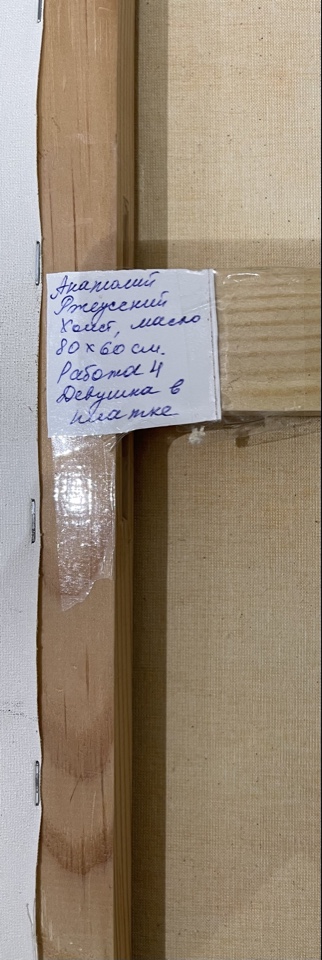 Анатолий
Ржеусский
Холст, масло
80 х 60 см.
Работа 4
Девушка в
платке